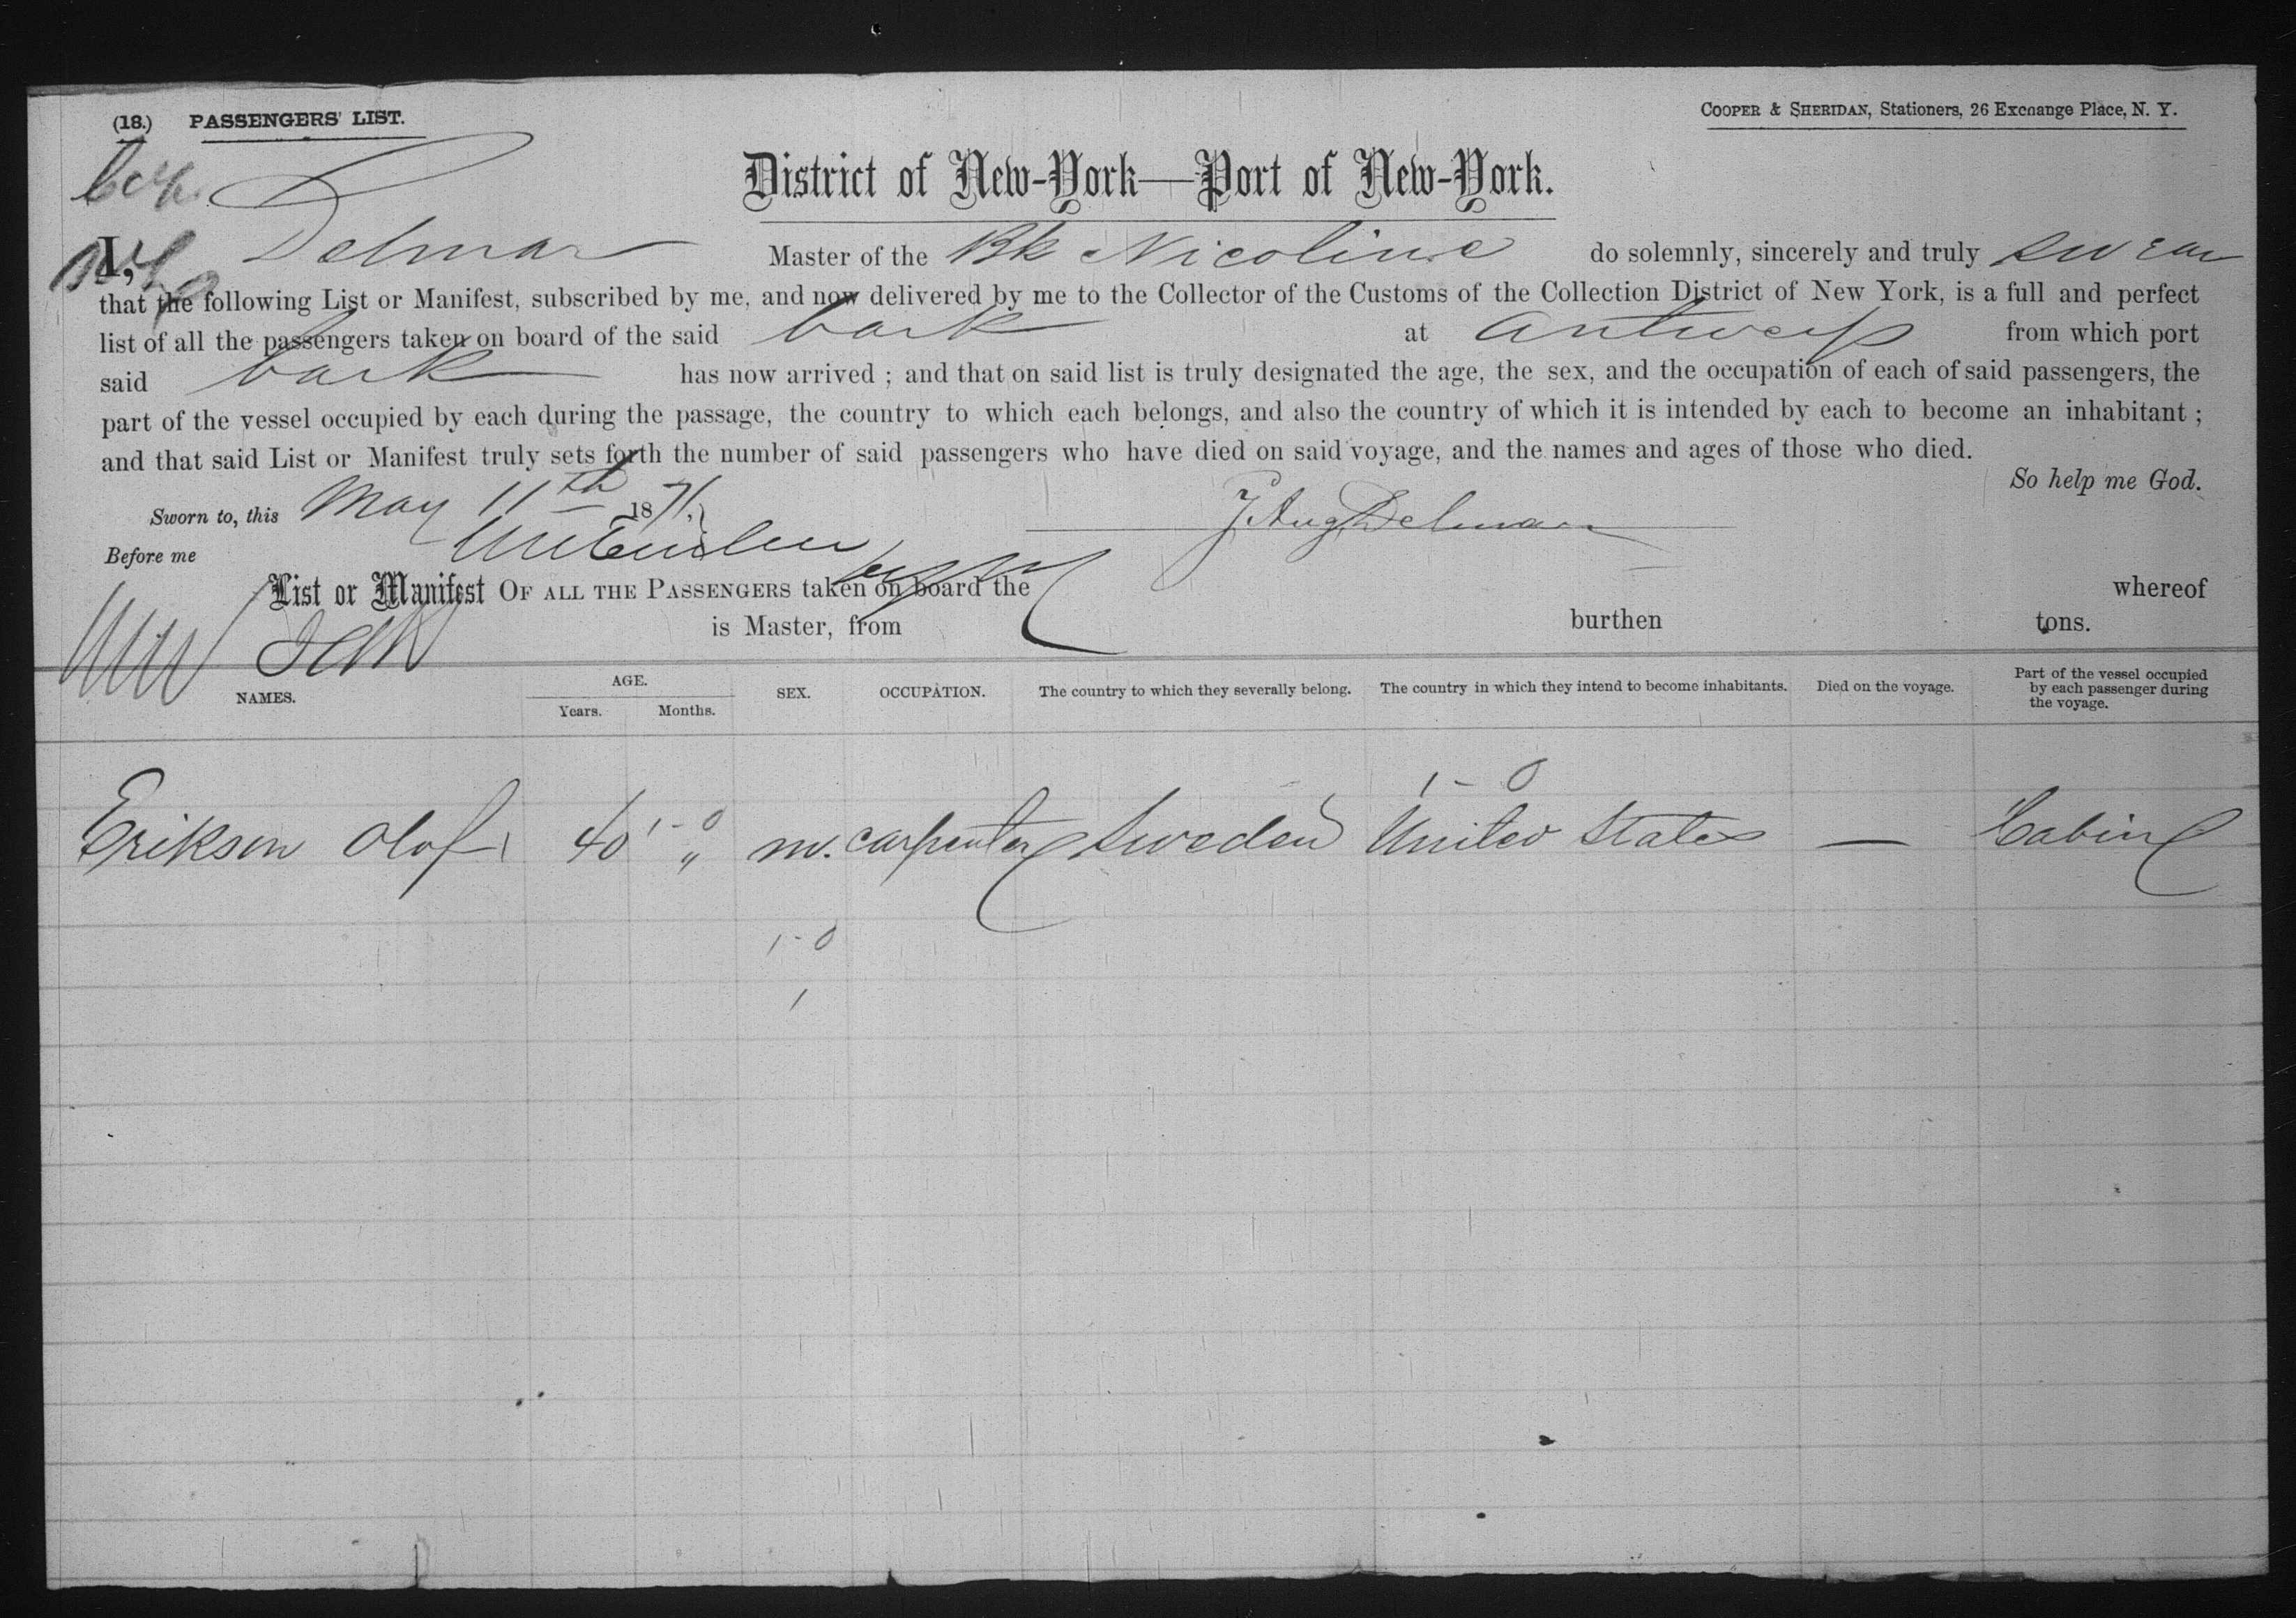 (18.) PASSENGERS' LIST.
COOPER & SHERIDAN, Stationers, 26 Exchange Place, N. Y.
District of New-York—Port of New-York.
I, Delmar Master of the Bk Nicoline do solemnly, sincerely and truly swear
that the following List or Manifest, subscribed by me, and now delivered by me to the Collector of the Customs of the Collection District of New York, is a full and perfect
list of all the passengers taken on board of the said bark at Antwerp from which port
said bark has now arrived ; and that on said list is truly designated the age, the sex, and the occupation of each of said passengers, the
part of the vessel occupied by each during the passage, the country to which each belongs, and also the country of which it is intended by each to become an inhabitant ;
and that said List or Manifest truly sets forth the number of said passengers who have died on said voyage, and the names and ages of those who died.
So help me God.
Sworn to, this May 11th 1871. J. Aug. Delmar
Before me
List or Manifest OF ALL THE PASSENGERS taken on board the whereof
is Master, from burthen tons.
NAMES. AGE. Years. Months. SEX. OCCUPATION. The country to which they severally belong. The country in which they intend to become inhabitants. Died on the voyage. Part of the vessel occupied by each passenger during the voyage.
1 - 0
Erikson Olof 40 1 - 0 " m. carpenter Sweden United States — Cabin
1 - 0
1